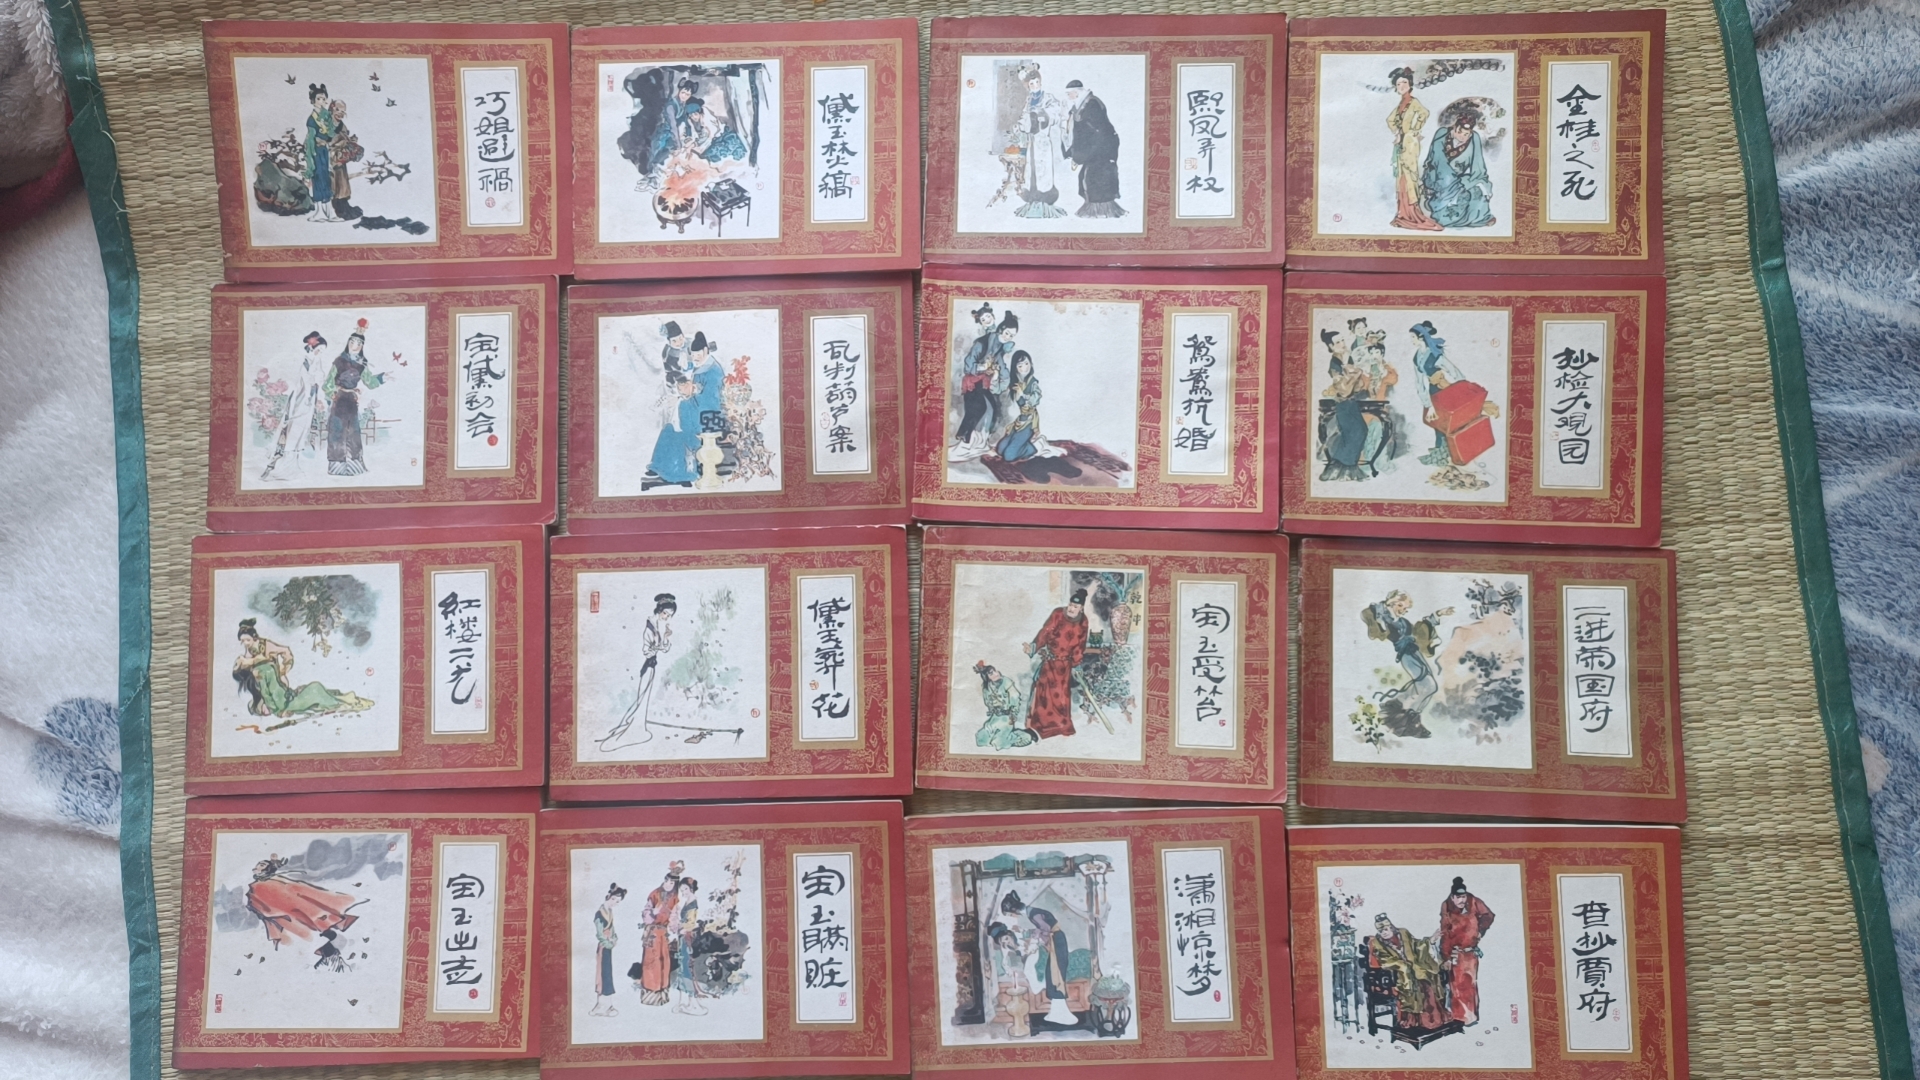 巧姐避祸
黛玉焚稿
熙凤弄权
金桂之死
宝黛初会
乱判葫芦案
鸳鸯抗婚
抄检大观园
红楼二尤
黛玉葬花
宝玉受笞
二进荣国府
宝玉出走
宝玉瞒赃
潇湘惊梦
查抄贾府